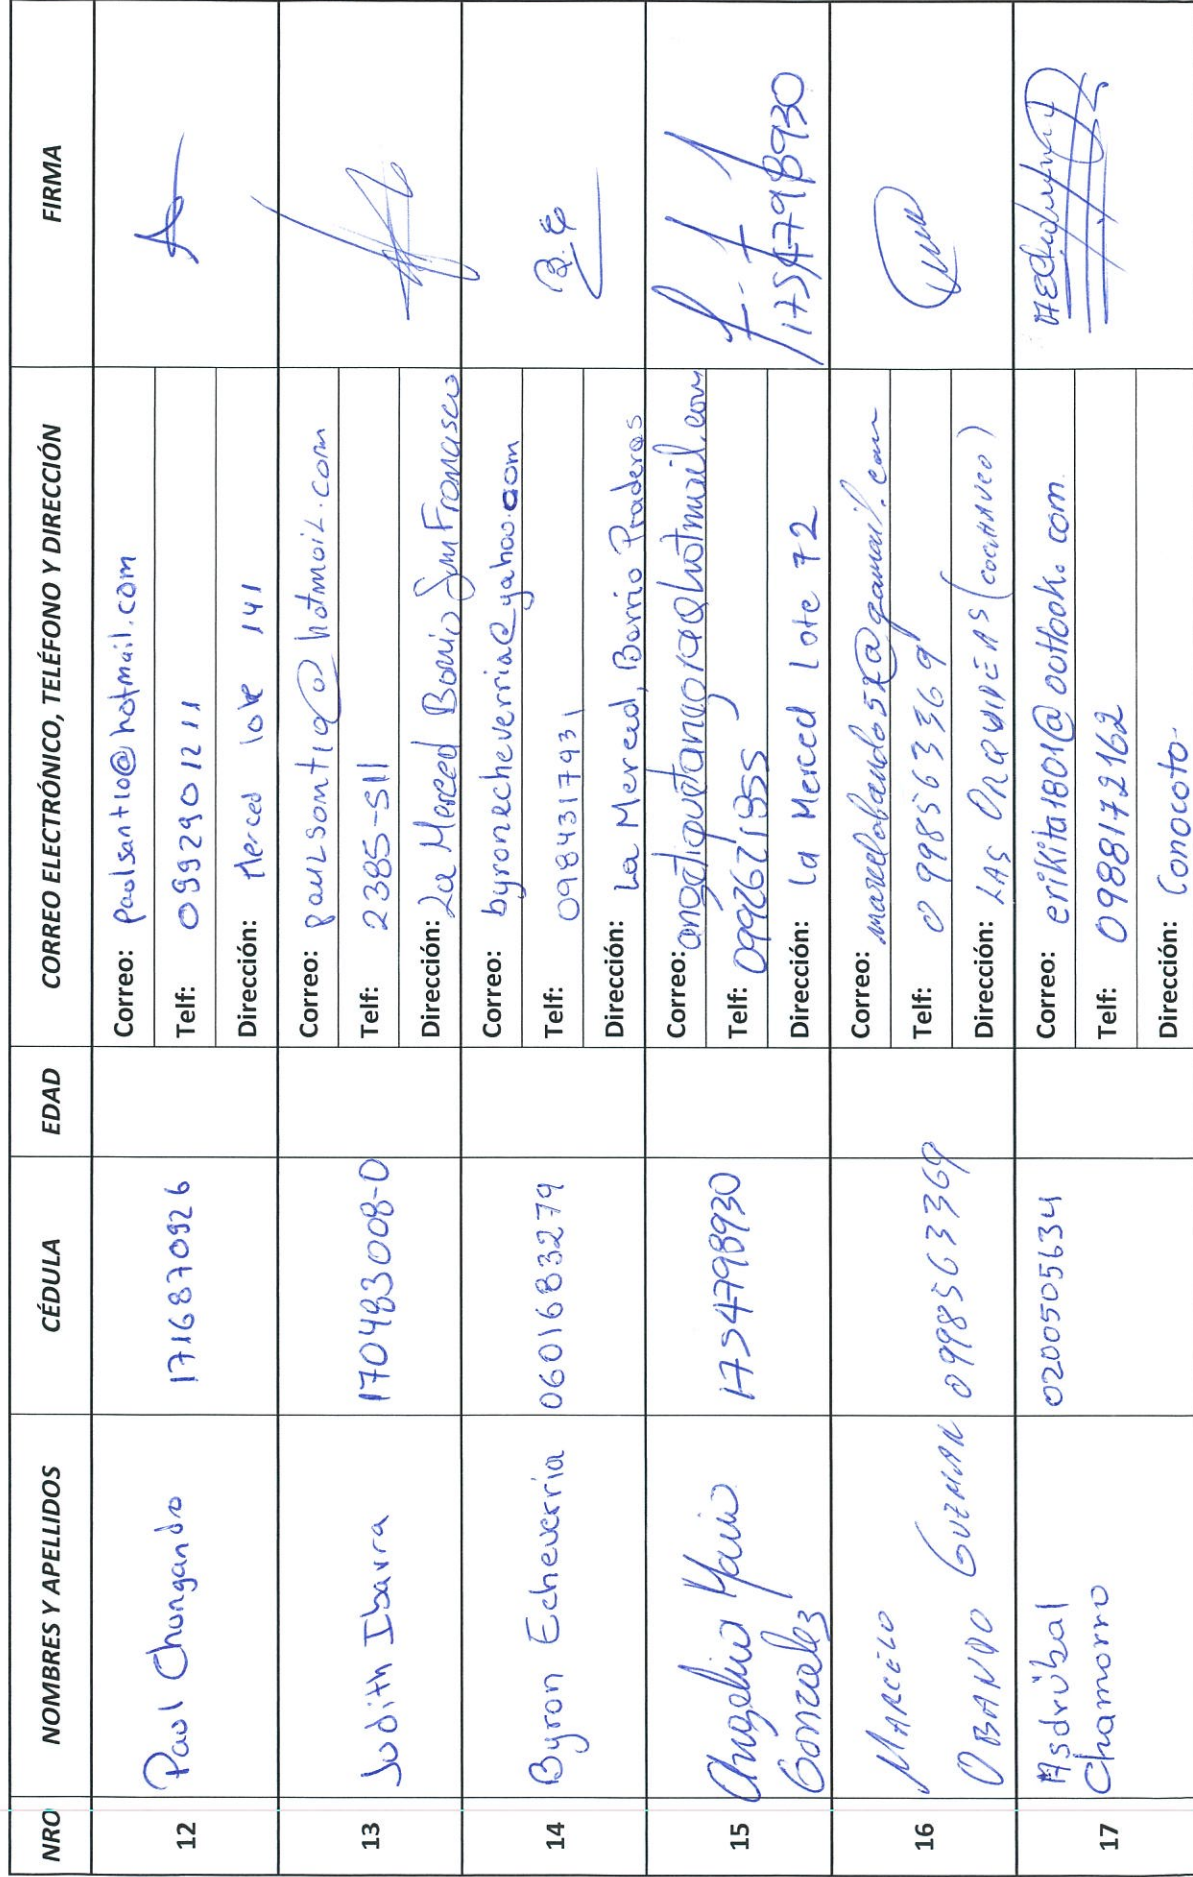 NRO NOMBRES Y APELLIDOS CÉDULA EDAD CORREO ELECTRÓNICO, TELÉFONO Y DIRECCIÓN FIRMA
12 Paul Changando 1716870926
Correo: paulsant10@hotmail.com
Telf: 0992901211
Dirección: Merced lote 141
13 Judith Ibarra 170483008-0
Correo: paulsant1@hotmail.com
Telf: 2385-511
Dirección: La Merced Barrio San Francisco
14 Byron Echeverria 0601683279
Correo: byronecheverria@yahoo.com
Telf: 0984317931
Dirección: La Merced, Barrio Praderas
B.E
15 Angelina Maria
Gonzalez
1754798930
Correo: @hotmail.com
Telf:
Dirección: La Merced Lote 72
1754798930
16 MARCELO
OBANDO GUZMAN 0998563369
Correo: marceloobando52@gmail.com
Telf: 0998563369
Dirección: LAS ORQUIDEAS
17 Asdrúbal
Chamorro
0200505634
Correo: erikita1801@outlook.com
Telf: 0988172162
Dirección: Conocoto-